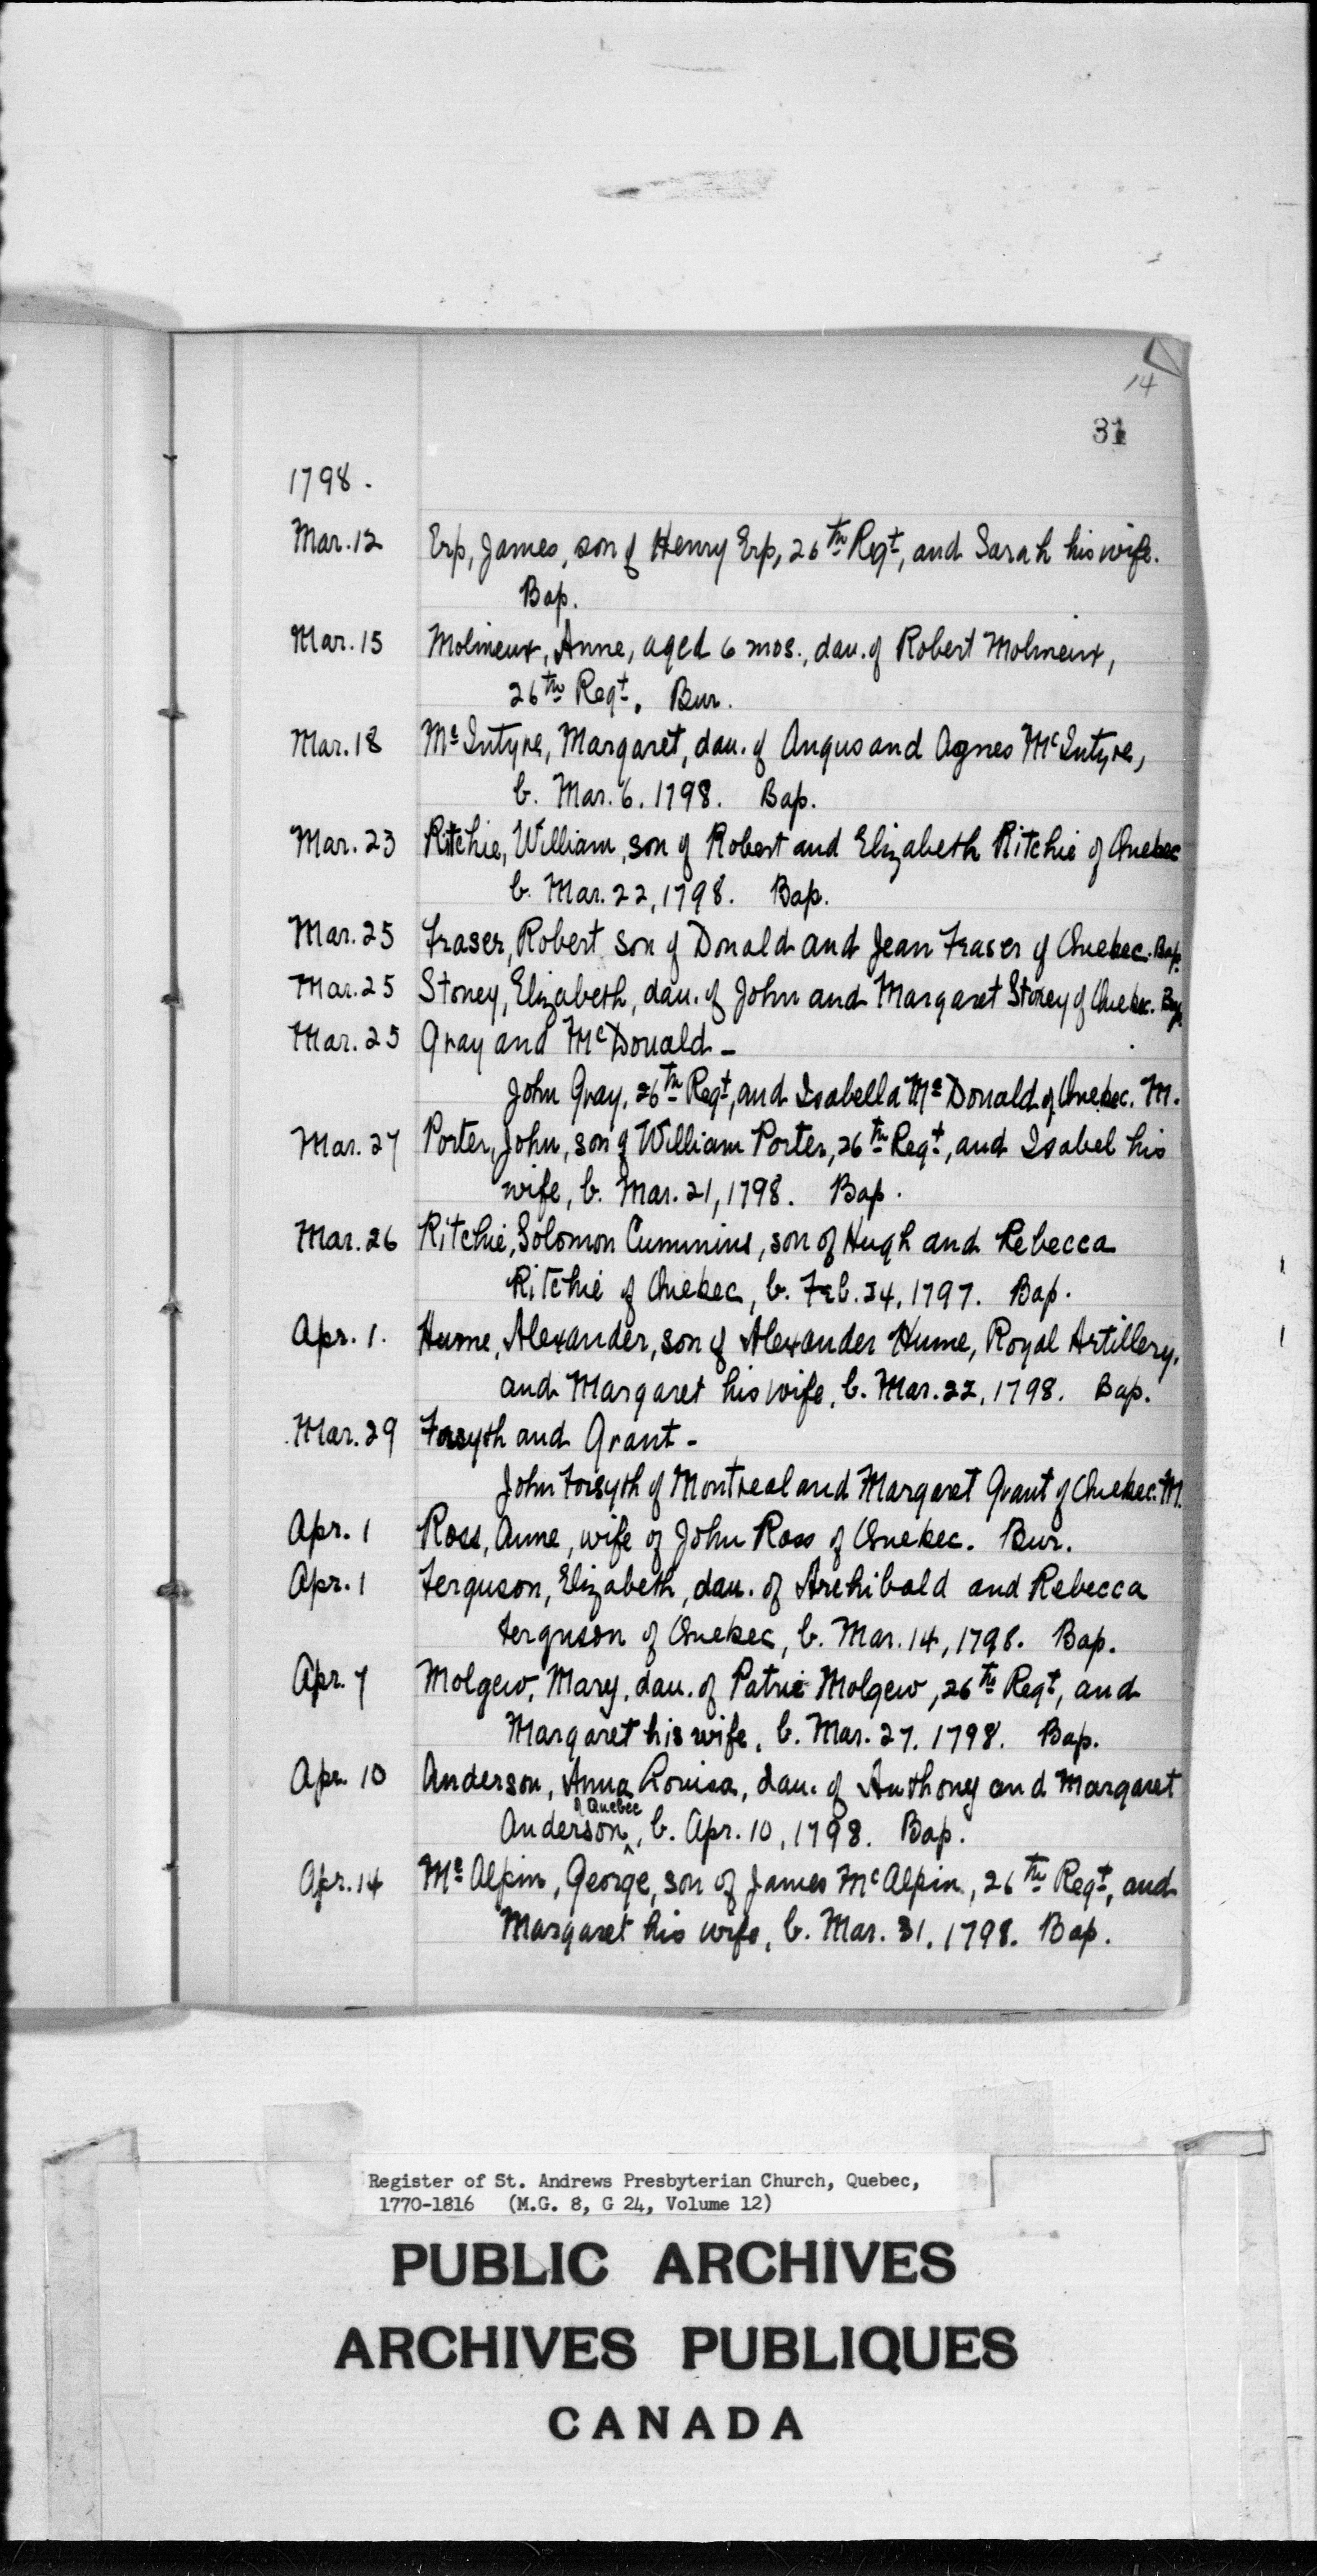 14
31
1798.
Mar. 12 Erp, James, son of Henry Erp, 26th Regt, and Sarah his wife.
Bap.
Mar. 15 Molineux, Anne, aged 6 mos., dau. of Robert Molineux,
26th Regt. Bur.
Mar. 18 Mc Intyre, Margaret, dau. of Angus and Agnes McIntyre,
b. Mar. 6. 1798. Bap.
Mar. 23 Ritchie, William, son of Robert and Elizabeth Ritchie of Quebec
b. Mar. 22, 1798. Bap.
Mar. 25 Fraser, Robert son of Donald and Jean Fraser of Quebec. Bap.
Mar. 25 Stoney, Elizabeth, dau. of John and Margaret Stoney of Quebec. Bap.
Mar. 25 Gray and McDonald -
John Gray, 26th Regt, and Isabella McDonald of Quebec. M.
Mar. 27 Porter, John, son of William Porter, 26th Regt, and Isabel his
wife, b. Mar. 21, 1798. Bap.
Mar. 26 Ritchie, Solomon Cummins, son of Hugh and Rebecca
Ritchie of Quebec, b. Feb. 24. 1797. Bap.
Apr. 1. Hume, Alexander, son of Alexander Hume, Royal Artillery,
and Margaret his wife, b. Mar. 22, 1798. Bap.
Mar. 29 Forsyth and Grant -
John Forsyth of Montreal and Margaret Grant of Quebec. M.
Apr. 1 Ross, Anne, wife of John Ross of Quebec. Bur.
Apr. 1 Ferguson, Elizabeth, dau. of Archibald and Rebecca
Ferguson of Quebec, b. Mar. 14, 1798. Bap.
Apr. 7 Molgew, Mary, dau. of Patric Molgew, 26th Regt, and
Margaret his wife, b. Mar. 27. 1798. Bap.
Apr. 10 Anderson, Anna Louisa, dau. of Anthony and Margaret
Anderson of Quebec, b. Apr. 10, 1798. Bap.
Apr. 14 Mc Alpin, George, son of James McAlpin, 26th Regt, and
Margaret his wife, b. Mar. 31. 1798. Bap.
Register of St. Andrews Presbyterian Church, Quebec,
1770-1816 (M.G. 8, G 24, Volume 12)
PUBLIC ARCHIVES
ARCHIVES PUBLIQUES
CANADA